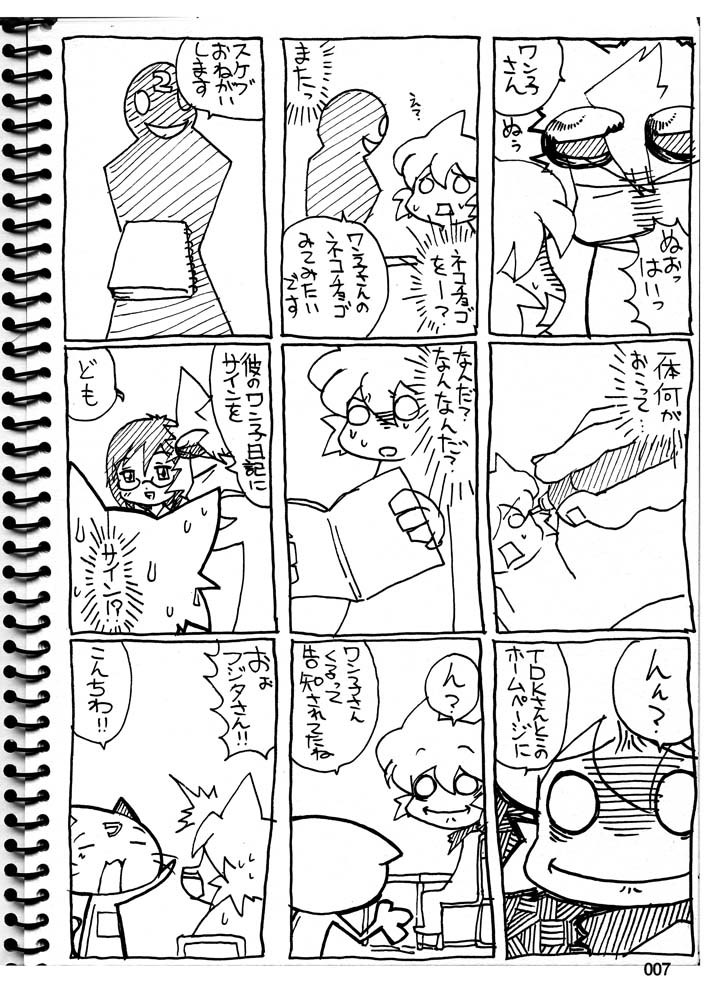 ワン子
さん
ぬぅ
ぬおっ
はいっ
またっ
えっ?
ネコチョゴ
をー?
ワン子さんの
ネコチョゴ
みてみたい
です
スケブ
おねがい
します
2
一体何が
おこって…
なんだ?
なんなんだ?
彼のワン子日記に
サインを
ども
サイン!?
んん?
TDKさんとこの
ホームページに
ん?
ワン子さん
くるって
告知されてたね
おぉ
フジタさん!!
こんちわ!!
007